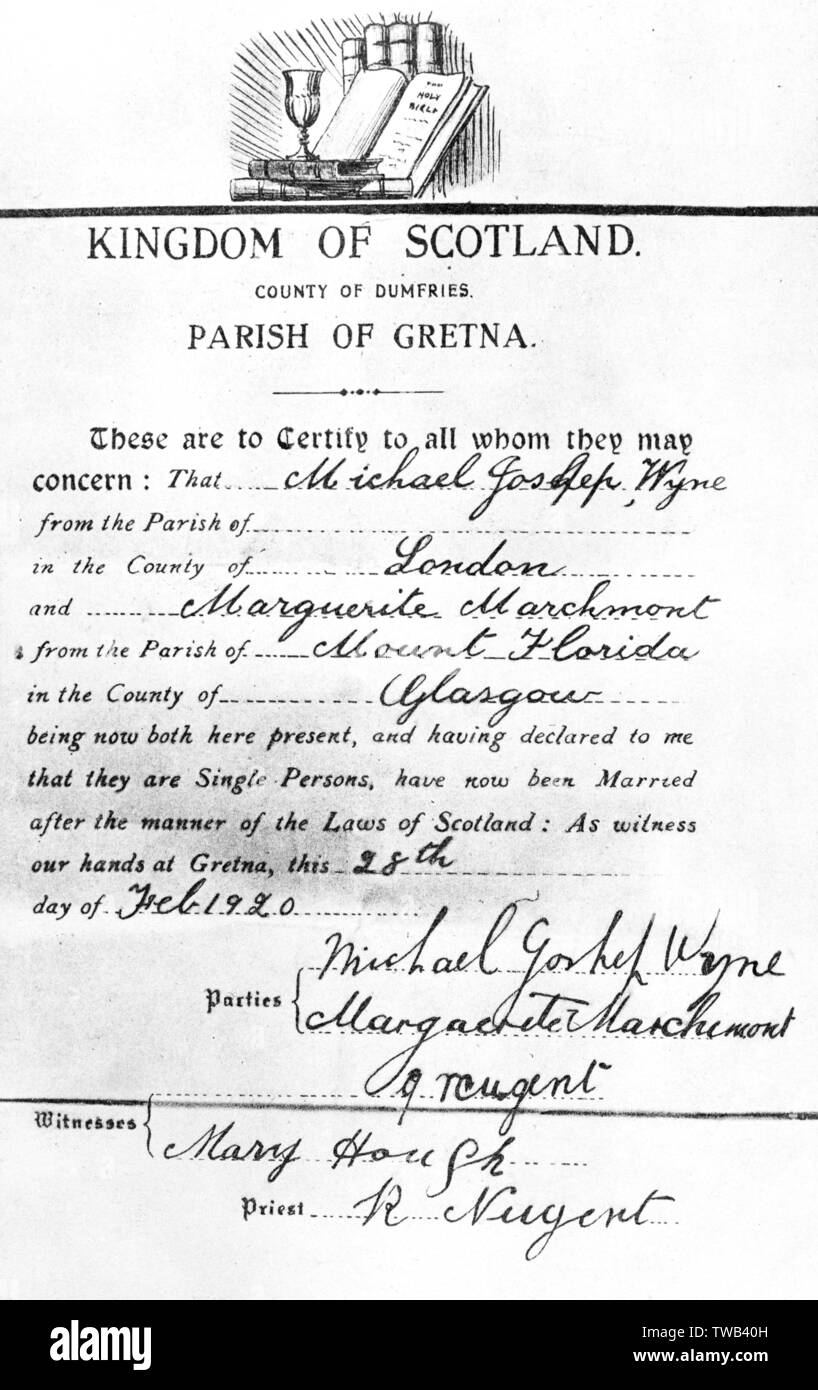 THE
HOLY
BIBLE
KINGDOM OF SCOTLAND.
COUNTY OF DUMFRIES.
PARISH OF GRETNA.
These are to Certify to all whom they may
concern: That Michael Joshep Wyne
from the Parish of
in the County of London
and Marguerite Marchmont
from the Parish of Mount Florida
in the County of Glasgow
being now both here present, and having declared to me
that they are Single Persons, have now been Married
after the manner of the Laws of Scotland: As witness
our hands at Gretna, this 28th
day of Feb 1920
Parties Michael Joshep Wyne
Marguerite Marchmont
Nugent
Witnesses
Mary Hough
Priest R Nugent
alamy
Image ID: TWB40H
www.alamy.com